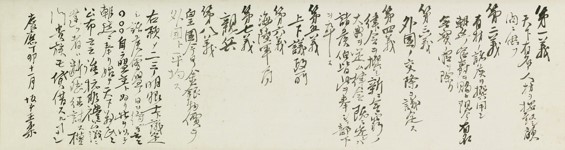 第一義
天下有名ノ人材ヲ招致シ顧
問ニ供フ
第二義
有材ノ諸侯ヲ撰用シ
朝廷ノ官爵ヲ賜ヒ現今有名
無実ノ官ヲ除ク
第三義
外国ノ交際ヲ議定ス
第四義
律令ヲ撰シ新ニ無窮ノ
大典ヲ定ム律令既ニ定レハ
諸侯伯皆此ヲ奉シテ部下
ヲ率ユ
第五義
上下議政所
第六義
海陸軍局
第七義
親兵
第八義
皇国今日ノ金銀物価ヲ
外国ト平均ス
右預メ二三ノ明眼士ト議定
シ諸侯会盟ノ日ヲ待ツテ云云
○○○自ラ盟主ト為リ此ヲ以テ
朝廷ニ奉リ始テ天下万民ニ
公布云云強抗非礼公議ニ
違フ者ハ断然征討ス権
門貴族モ貸借スルコトナシ
慶応丁卯十一月 坂本直柔